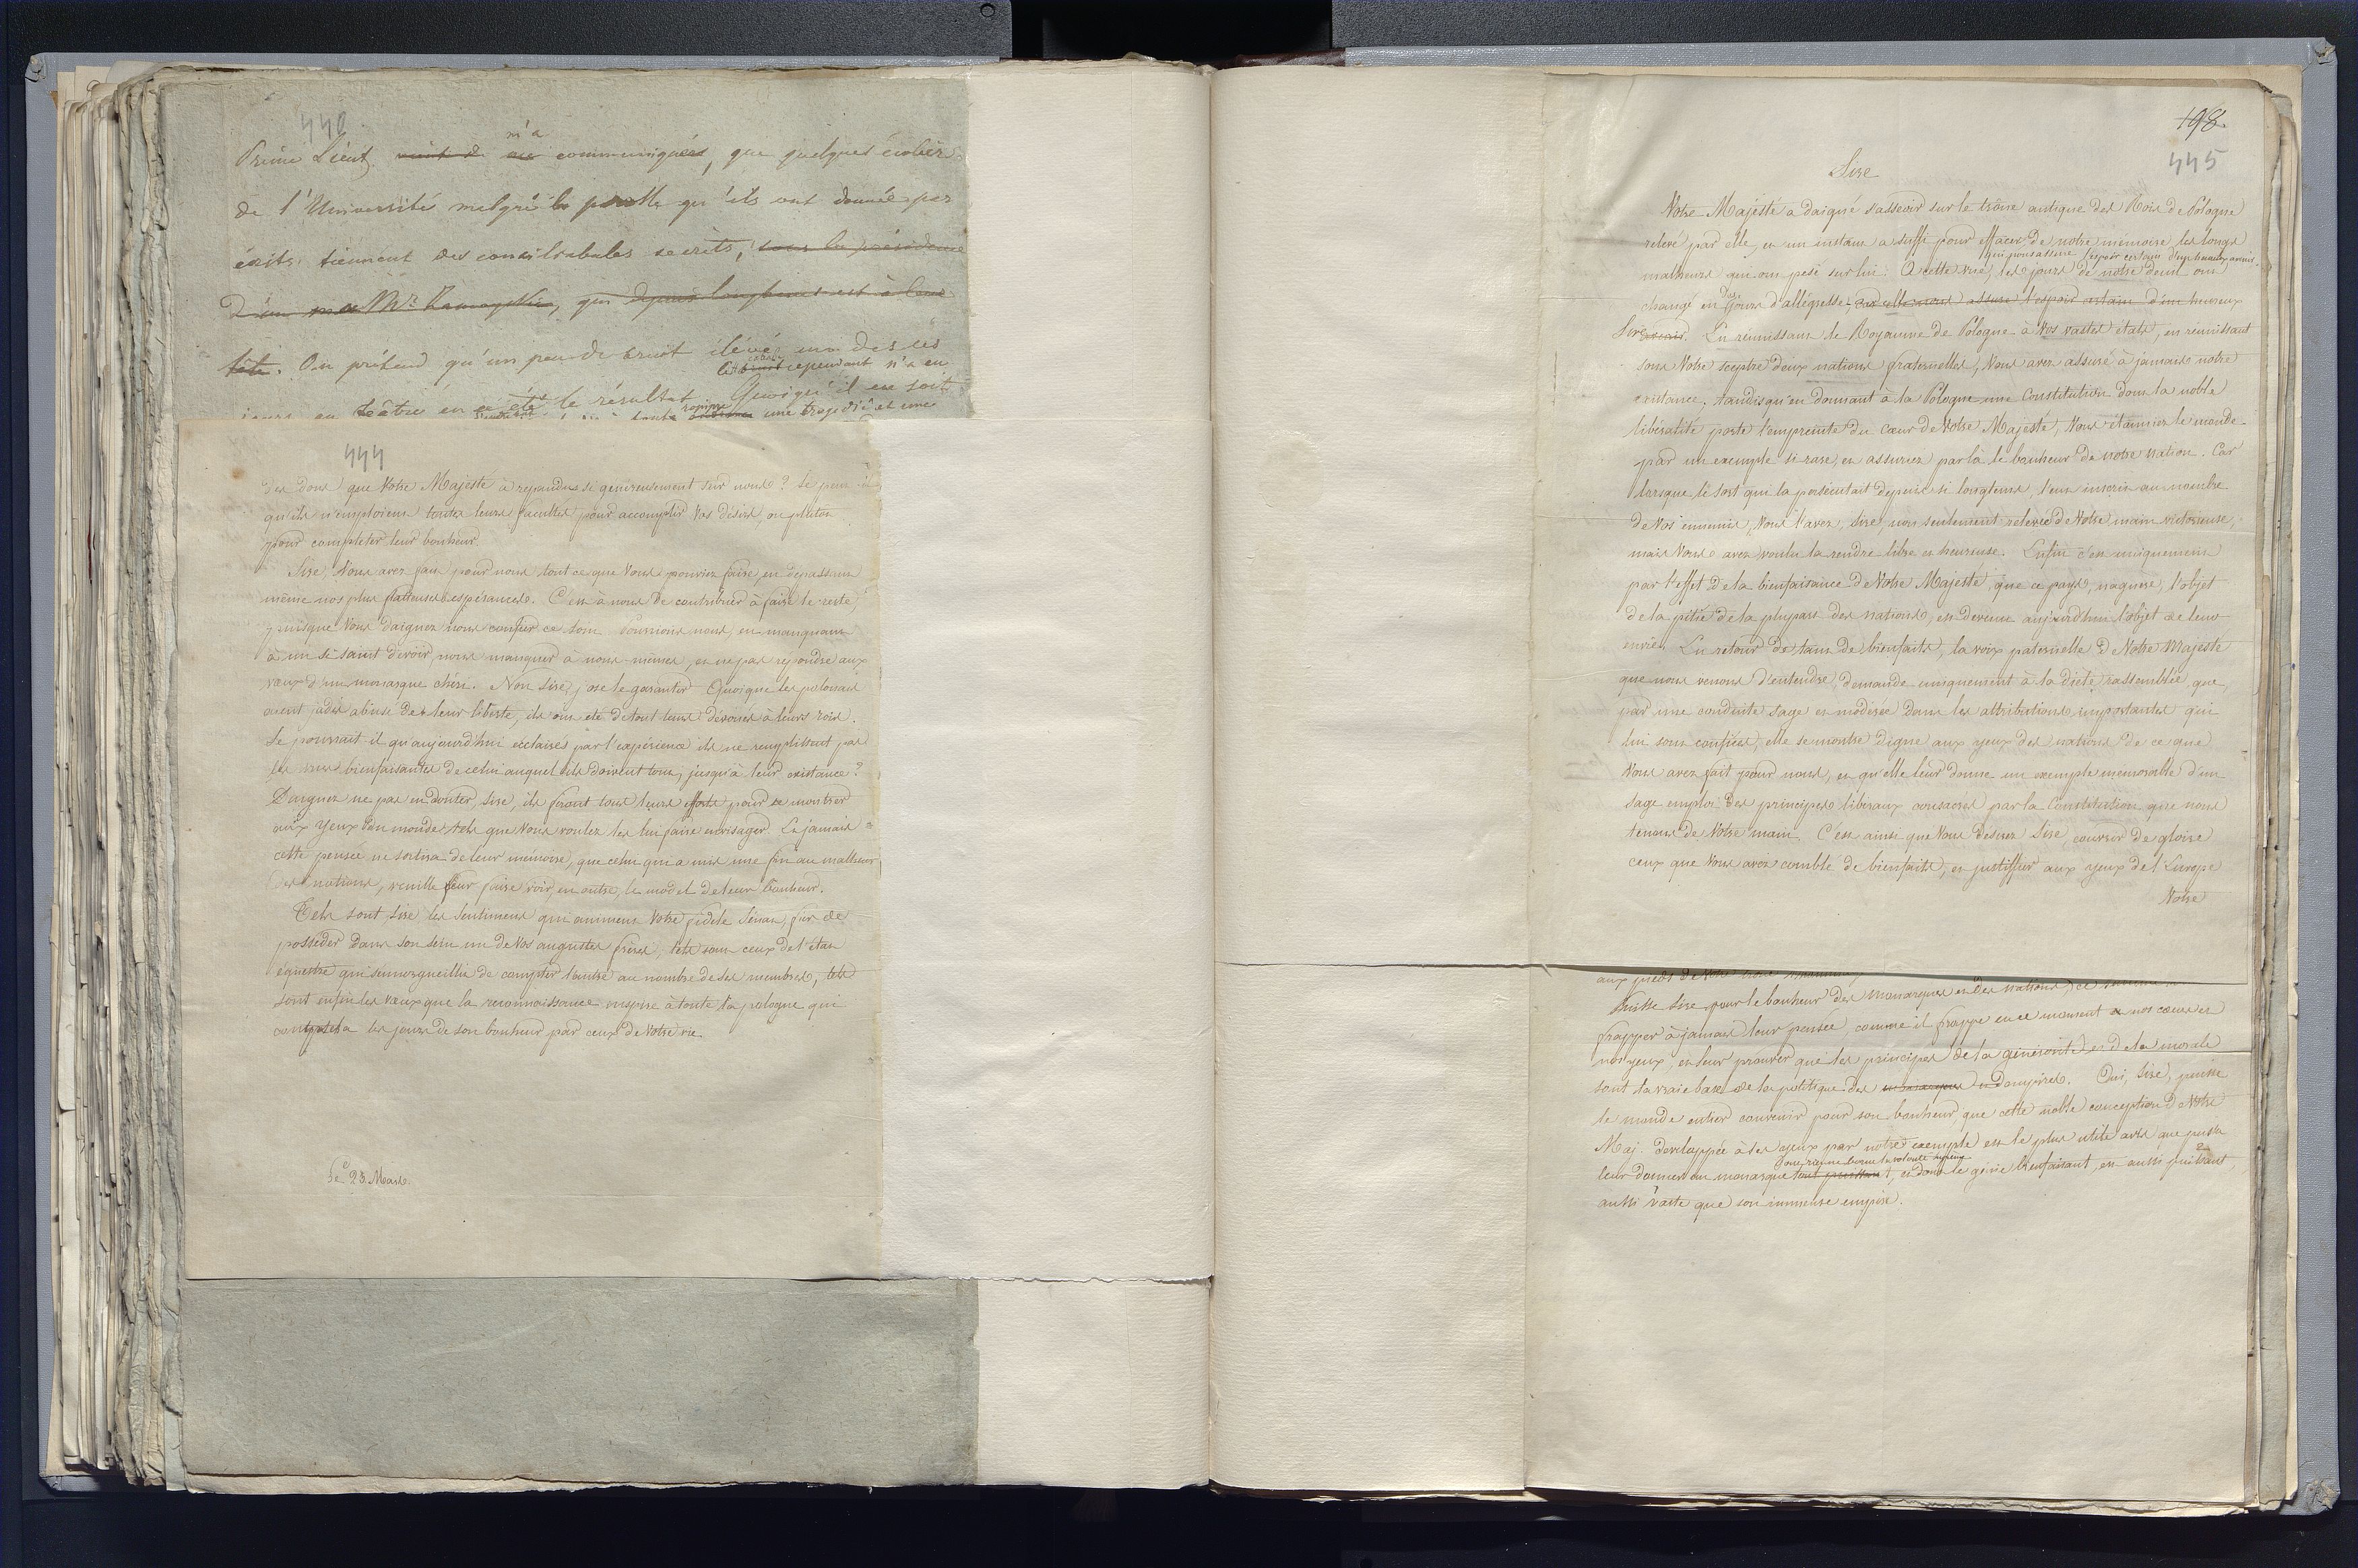 440
m'a
Prime Lieut. vient de me communiquér, que quelques écoliers
de l'Université malgré la parolle qu'ils ont donnée par
écrits tiennent des conciliabules secrets, sous la présidence
d'un Mr. Zamoyski, qui depuis longtems est à leur
tête. On prétend qu'un peu de bruit élevé un des ces
cependant n'a eu
jours au téâtre en a été le résultat. Quoiqu'il en soit
toute une tragedie et une
444
des dons que Votre Majesté à repandus si genereusement sur nous? Se peut-il
qu'ils n'emploient toutes leurs facultés pour accomplir Vos désirs, ou plutôt
pour completer leur bonheur.
Sire, Vous avez fait pour nous tout ce que Vous pouviez faire, en depassant
même nos plus flatteuses espérances. C'est à nous de contribuer à faire le reste,
puisque Vous daignez nous confier ce soin. Pourrions nous, en manquant
à un si saint devoir, nous manquer à nous-mêmes, et ne pas repondre aux
vœux d'un monarque chéri. Non Sire, j'ose le garantir. Quoique les polonais
aient jadis abusé de leur liberté, ils ont été de tout tems dévoués à leurs rois.
Se pourrait-il qu'aujourd'hui éclairés par l'expérience ils ne remplissent pas
les vues bienfaisantes de celui auquel ils doivent tout, jusqu'à leur existance?
Daignez ne pas en douter, Sire, ils feront tous leurs efforts pour se montrer
aux yeux du monde tels que Vous voulez les lui faire envisager. Et jamais
cette pensée ne sortira de leur mémoire, que celui qui a mis une fin au malheur
des nations, veuille leur faire voir, en outre, le model de leur bonheur.
Tels sont, Sire, les Sentimens qui animent Votre fidele Sénat, fier de
posséder dans son sein un de Vos augustes frères, tels sont ceux de l'état
équestre qui s'enorgueillit de compter l'autre au nombre de ses membres, tels
sont enfin les vœux que la reconnoissance inspire à toute la pologne qui
comptera les jours de son bonheur par ceux de Votre vie.
Le 23 Mars.
198.
445
Sire
Votre Majesté a daigné s'asseoir sur le trône antique des Rois de Pologne
relevé par elle, et un instant a suffi pour effacer de notre mémoire les longs
qui nous assure l'espoir certain d'un heureux avenir.
malheurs qui ont pesé sur lui. A cette vue, les jours de notre deuil ont
des
changé en jours d'allégresse, car elle nous assure l'espoir certain d'un heureux
Sire avenir. En réunissant le Royaume de Pologne à Vos vastes états, en reunissant
sous Votre sceptre deux nations fraternelles, Vous avez assuré à jamais notre
existance; tandis qu'en donnant à la Pologne une Constitution dont la noble
libéralité porte l'empreinte du cœur de Votre Majesté, Vous étonniez le monde
par un exemple si rare, et assuriez par là le bonheur de notre nation. Car
lorsque le sort qui la persécutait depuis si longtems, l'eut inscrit au nombre
de Vos ennemis, Vous l'avez, Sire, non seulement relevée de Votre main victorieuse,
mais Vous avez voulu la rendre libre et heureuse. Enfin c'est uniquement
par l'effet de la bienfaisance de Votre Majesté, que ce pays, naguère, l'objet
de la pitié de la plupart des nations, est devenu aujourd'hui l'objet de leur
envie. En retour de tant de bienfaits, la voix paternelle de Votre Majesté
que nous venons d'entendre, demande uniquement à la diète rassemblée, que
par une conduite sage et modérée dans les attributions importantes qui
lui sont confiées, elle se montre digne aux yeux des nations de ce que
Vous avez fait pour nous, et qu'elle leur donne un exemple memorable d'un
sage emploi des principes liberaux consacrés par la Constitution que nous
tenons de Votre main. C'est ainsi que Vous desirez Sire, couvrir de gloire
ceux que Vous avez comblé de bienfaits, et justifier aux yeux de l'Europe
Votre
aux pieds de Votre
Puisse Sire pour le bonheur des monarques et des nations, ce
frapper à jamais leur pensée, comme il frappe en ce moment nos cœurs et
nos yeux, et leur prouver que les principes de la générosité et de la morale
sont la vraie base de la politique des empires. Oui, Sire, puisse
le monde entier convenir pour son bonheur, que cette noble conception de Votre
Maj. developpée à ses yeux par notre exemple est le plus utile avis que puisse
dont rien ne borne la volonté suprême
leur donner un monarque tout puissant, et dont le génie bienfaisant, est aussi puissant,
aussi vaste que son immense empire.